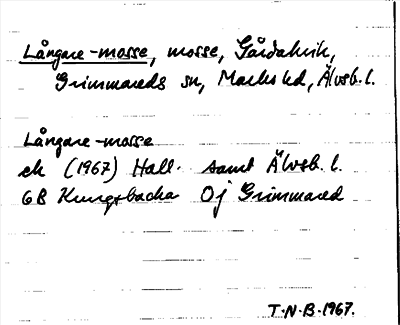 Långare-mosse, mosse, Gårdatvik,
Grimmareds sn, Marks hd, Älvsb. l.
Långare-mosse
ek (1967) Hall. samt Älvsb. l.
6B Kungsbacka Oj Grimmared
T.N.B. 1967.